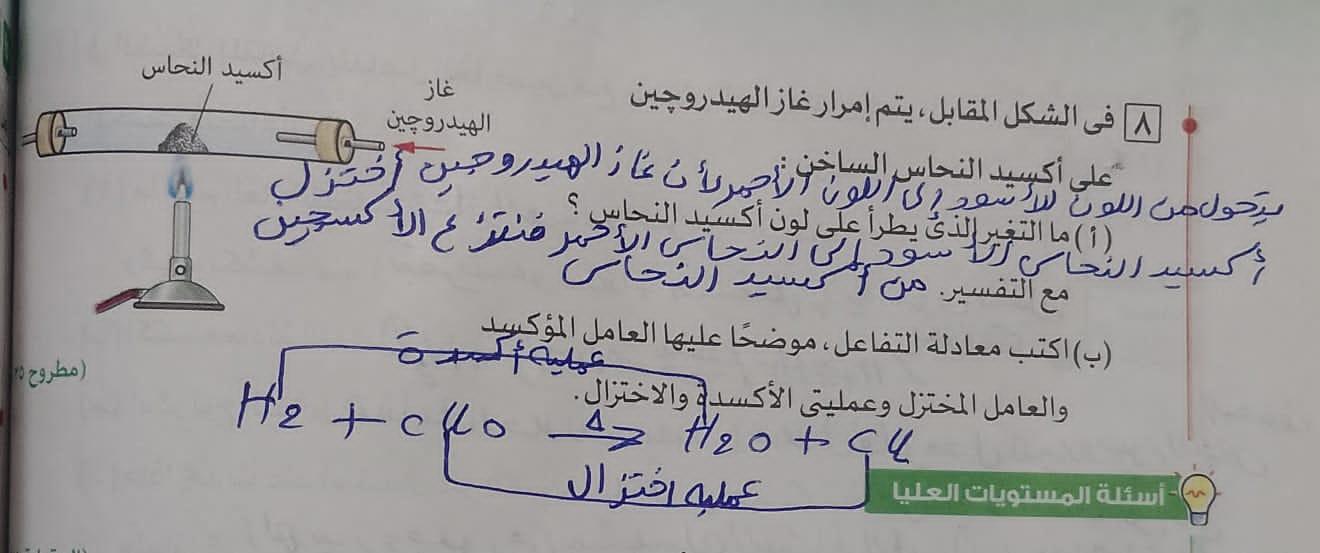 أكسيد النحاس
غاز
الهيدروچين
٨ فى الشكل المقابل، يتم إمرار غاز الهيدروچين
على أكسيد النحاس الساخن :
يتحول من اللون الأسود إلى اللون الأحمر لأن غاز الهيدروجين أختزل
(أ) ما التغير الذى يطرأ على لون أكسيد النحاس ؟
أكسيد النحاس الأسود إلى النحاس الأحمر فنتزع الأكسجين
مع التفسير.
من أكسيد النحاس
(ب) اكتب معادلة التفاعل، موضحًا عليها العامل المؤكسد
عملية أكسدة
والعامل المختزل وعمليتى الأكسدة والاختزال.
(مطروح
H2 + CuO Δ→ H2O + Cu
عملية اختزال
أسئلة المستويات العليا